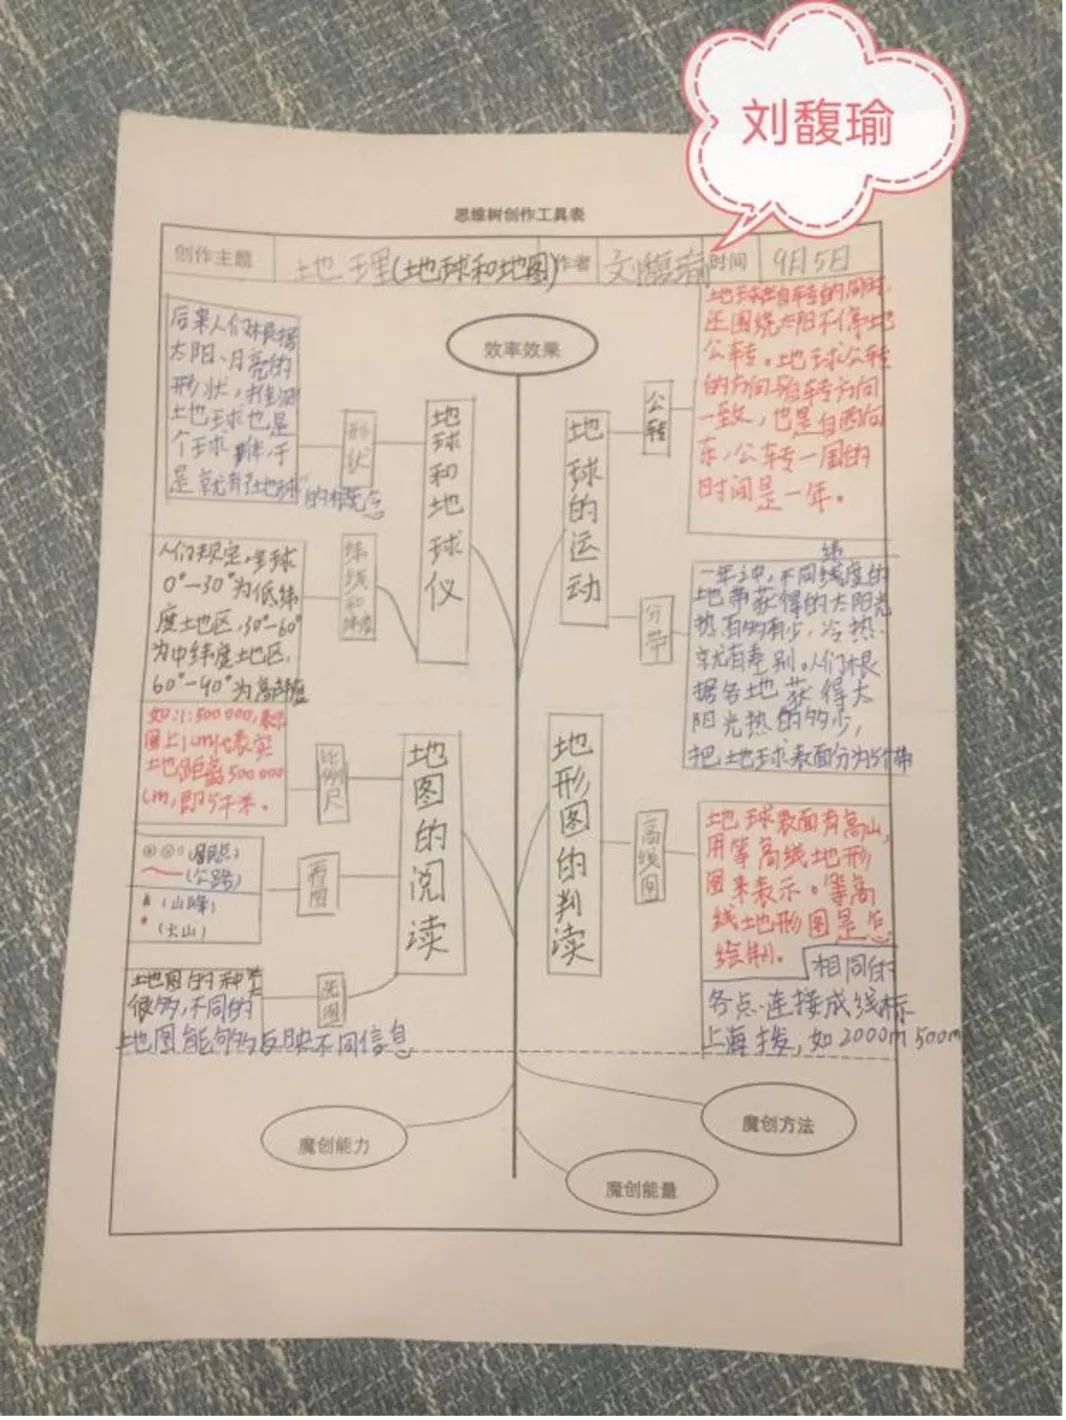 刘馥瑜
思维树创作工具表
创作主题
地理(地球和地图)
作者
刘馥瑜
时间
9月5日
效率效果
地球和地球仪
形状
后来人们根据
太阳、月亮的
形状，推测
土地球也是
个球
于
是就有了"地球"的概念
纬线和纬度
人们规定，
球
0°—30°为低纬
度土地区，30°—60°
为中纬度土地区，
60°—90°为高纬度
地图的阅读
比例尺
如:1:500000,表示
图上1cm代表实
土地距离500000
cm,即5千米。
看图
(居民点)
(公路)
(山峰)
(火山)
选图
地图的种类
很多,不同的
地图能够反映不同信息
地球的运动
公转
地球在自转的同时,
还围绕太阳不停地
公转。地球公转
的方向与自转方向
一致，也是自西向
东，公转一周的
时间是一年。
分带
纬
一年之中，不同线度的
地带获得的太阳光
热有多有少，冷热
就有差别。人们根
据各地获得太
阳光热的多少，
把地球表面分为5个带
地形图的判读
高线图
地球表面有高山,
用等高线地形
图来表示。等高
线地形图是怎
绘制。
相同的
各点连接成线标
上海拔，如2000m 500m
魔创能力
魔创方法
魔创能量